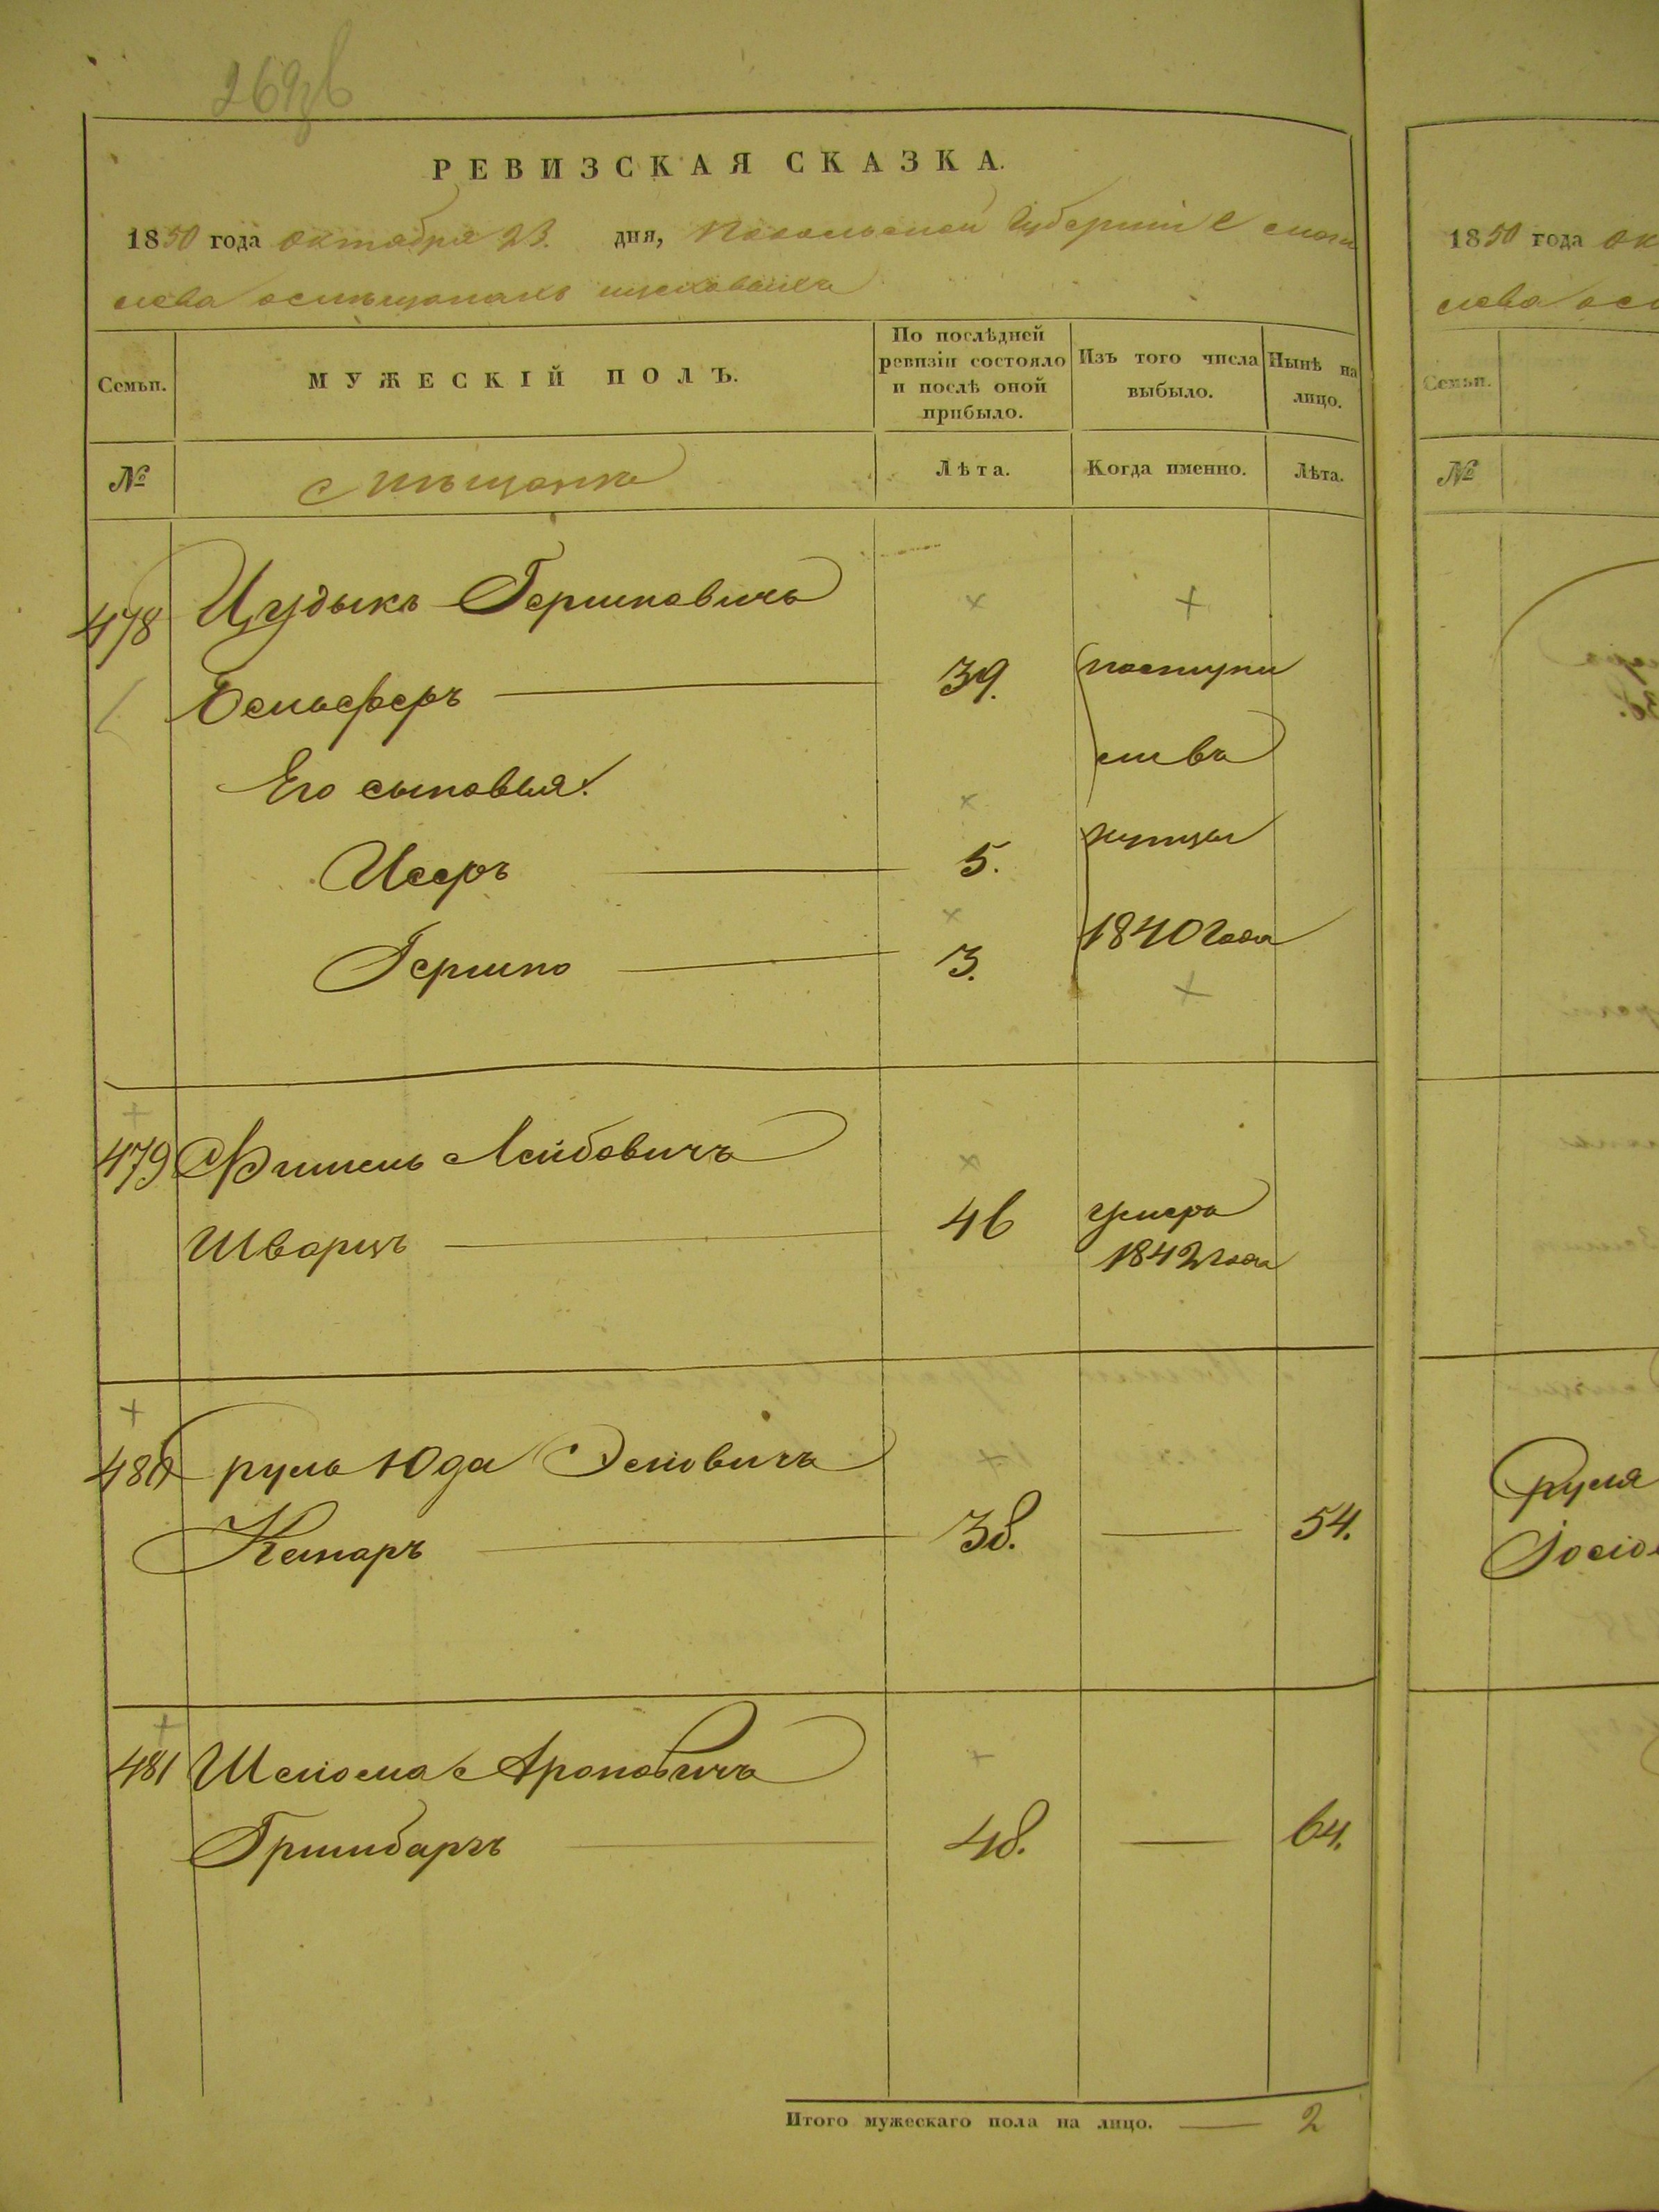 РЕВИЗСКАЯ СКАЗКА.
1850 года октября 23. дня, Подольской Губерніи
лева о мѣщанахъ
Семьи.
МУЖЕСКІЙ ПОЛЪ.
По послѣдней ревизіи состояло и послѣ оной прибыло.
Изъ того числа выбыло.
Нынѣ на лицо.
№
Лѣта.
Когда именно.
Лѣта.
478 Цудыкъ Гершковичъ
39. поступи
Его сыновья:
ли въ
Исеръ 5. купцы
Гершко 3. 1840 года
479 Фишель Лейбовичъ
Шварцъ 46 умеръ
1842 года
480 Сруль Юда
38. 54.
481 Шлиома Ароновичъ
Гринбаргъ 48. 64.
Итого мужескаго пола на лицо. 2
1850 года ок
Семьи.
№
Сруля